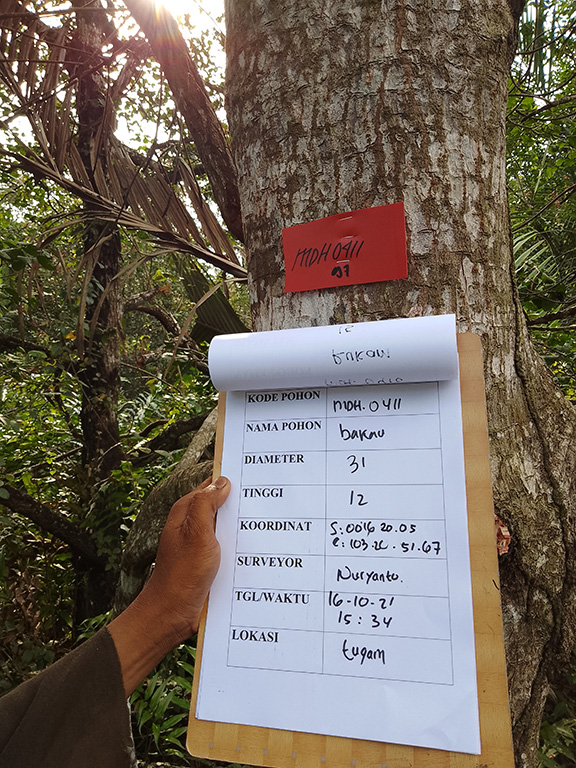 MDH 0411
97
bakau
KODE POHON MDH.0411
NAMA POHON bakau
DIAMETER 31
TINGGI 12
KOORDINAT S:0016 20.05
E:103.26.51.67
SURVEYOR Nuryanto.
TGL/WAKTU 16-10-21
15:34
LOKASI tugam